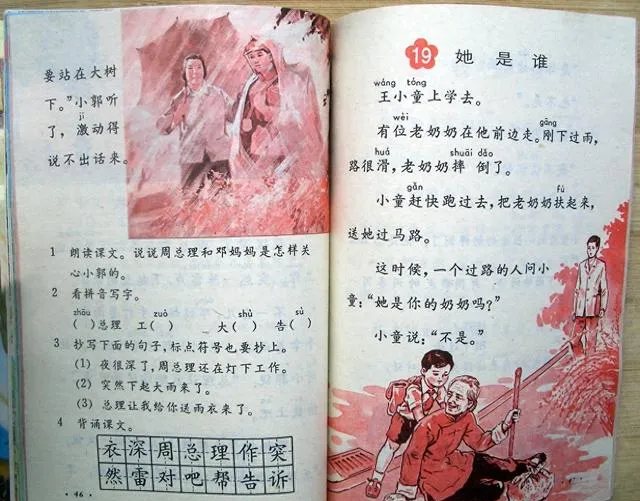 要站在大树
下。”小郭听
jī
了，激动得
说不出话来。
1 朗读课文。说说周总理和邓妈妈是怎样关
心小郭的。
2 看拼音写字。
zhōu zuò shù sù
( )总理 工( ) 大( ) 告( )
3 抄写下面的句子，标点符号也要抄上。
(1) 夜很深了，周总理还在灯下工作。
(2) 突然下起大雨来了。
(3) 总理让我给你送雨衣来了。
4 背诵课文。
衣深周总理作突
然雷对吧帮告诉
·46·
19 她是谁
wáng tóng
王小童上学去。
wèi gāng
有位老奶奶在他前边走。刚下过雨，
huá shuāi dǎo
路很滑，老奶奶摔倒了。
gǎn fú
小童赶快跑过去，把老奶奶扶起来，
送她过马路。
这时候，一个过路的人问小
童：“她是你的奶奶吗？”
小童说：“不是。”